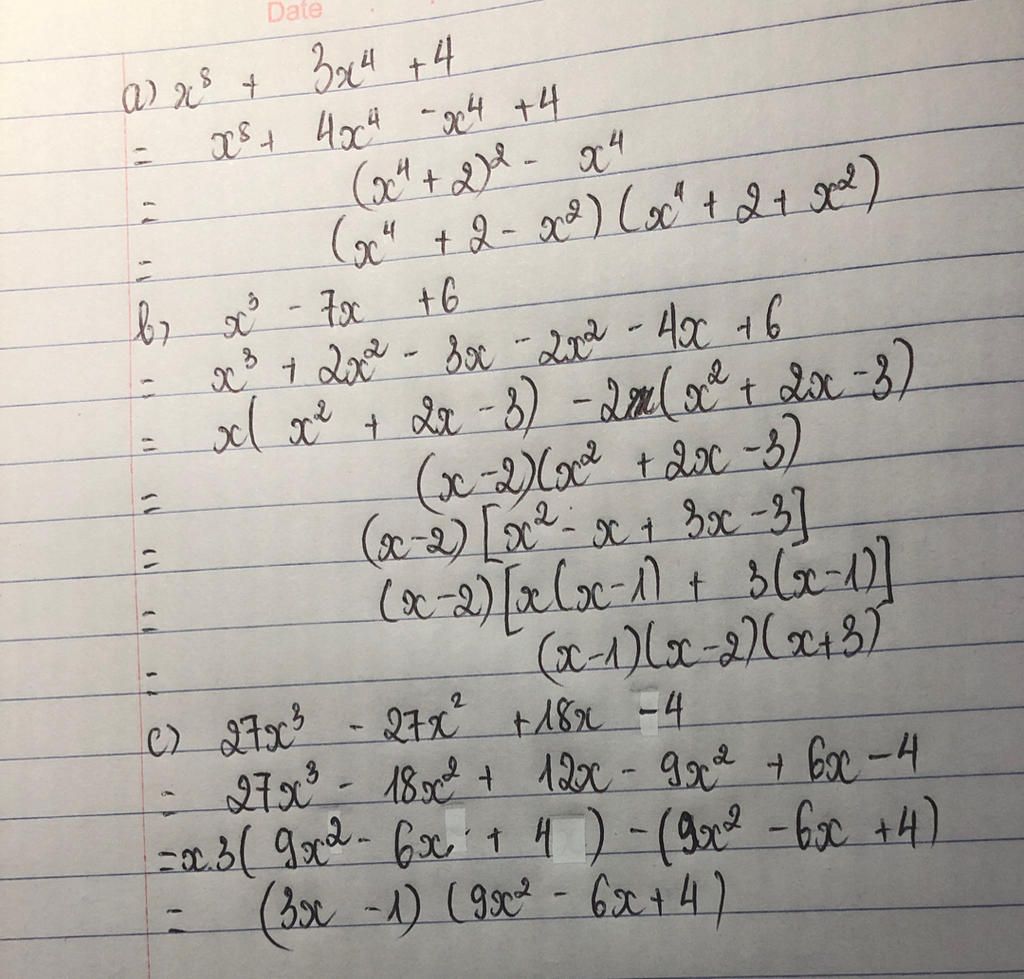 Date
a) x⁸ + 3x⁴ + 4
= x⁸ + 4x⁴ - x⁴ + 4
= (x⁴ + 2)² - x⁴
= (x⁴ + 2 - x²)(x⁴ + 2 + x²)
b) x³ - 7x + 6
= x³ + 2x² - 3x - 2x² - 4x + 6
= x(x² + 2x - 3) - 2(x² + 2x - 3)
= (x-2)(x² + 2x - 3)
= (x-2)[x² - x + 3x - 3]
= (x-2)[x(x-1) + 3(x-1)]
= (x-1)(x-2)(x+3)
c) 27x³ - 27x² + 18x - 4
= 27x³ - 18x² + 12x - 9x² + 6x - 4
= x.3(9x² - 6x + 4) - (9x² - 6x + 4)
= (3x - 1)(9x² - 6x + 4)